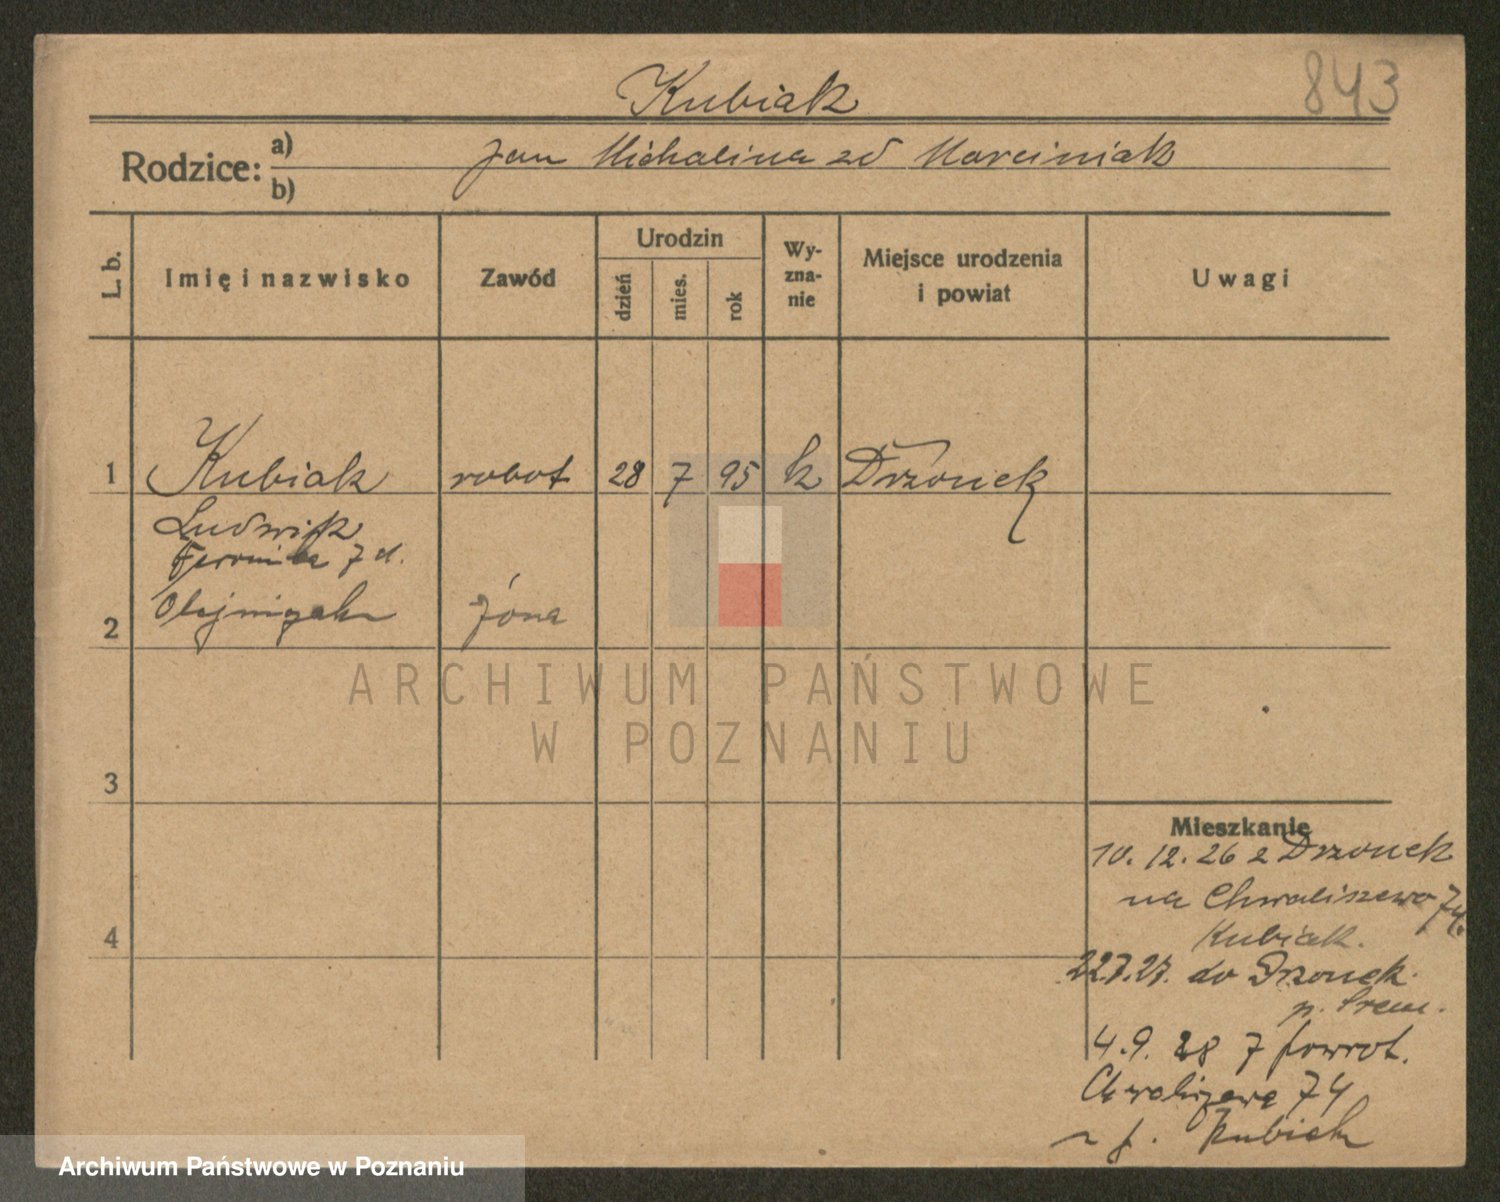 Kubiak
843
Rodzice: a) b)
Jan Michalina zd Marciniak
L. b.
Imię i nazwisko
Zawód
Urodzin
dzień
mies.
rok
Wy-
zna-
nie
Miejsce urodzenia
i powiat
Uwagi
1 Kubiak robot 28 7 95 k Drzonek
Ludwik
Olejniczak żona
2
ARCHIWUM PAŃSTWOWE
W POZNANIU
3
4
Mieszkanie
10. 12. 26 z Drzonek
na Chwaliszewo 74.
Kubiak.
22.7.27. do Drzonek.
p. Śrem.
4. 9. 28 z powrot.
Chwaliszewo 74
Kubiak
Archiwum Państwowe w Poznaniu